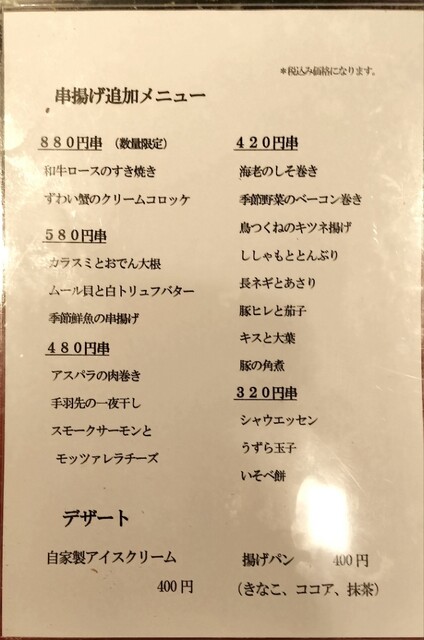 *税込み価格になります。
串揚げ追加メニュー
880円串 (数量限定)
和牛ロースのすき焼き
ずわい蟹のクリームコロッケ
580円串
カラスミとおでん大根
ムール貝と白トリュフバター
季節鮮魚の串揚げ
480円串
アスパラの肉巻き
手羽先の一夜干し
スモークサーモンと
モッツァレラチーズ
420円串
海老のしそ巻き
季節野菜のベーコン巻き
鳥つくねのキツネ揚げ
ししゃもととんぶり
長ネギとあさり
豚ヒレと茄子
キスと大葉
豚の角煮
320円串
シャウエッセン
うずら玉子
いそべ餅
デザート
自家製アイスクリーム
400円
揚げパン 400円
(きなこ、ココア、抹茶)